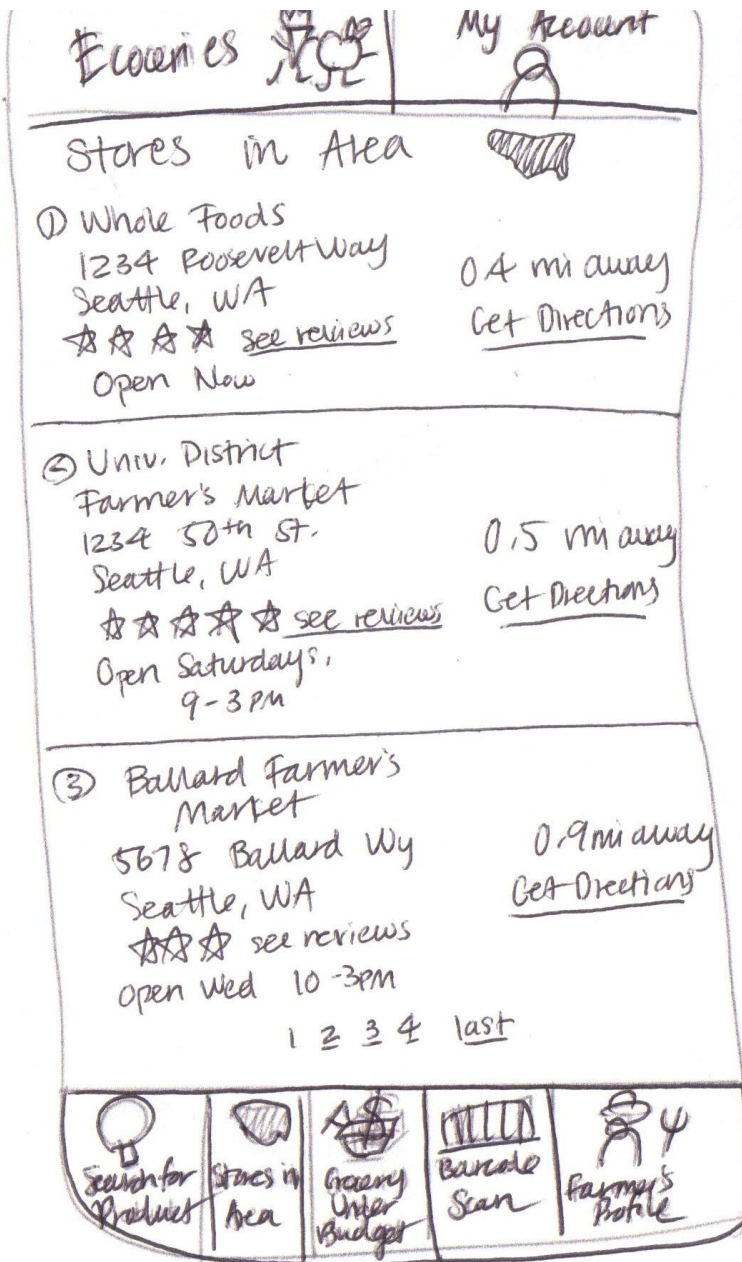 My Account
Stores in Area
① Whole Foods
1234 Roosevelt Way
Seattle, WA
see reviews
Open Now
0.4 mi away
Get Directions
② Univ. District
Farmer's Market
1234 50th St.
Seattle, WA
see reviews
Open Saturdays,
9-3 PM
0.5 mi away
Get Directions
③ Ballard Farmer's
Market
5678 Ballard Wy
Seattle, WA
see reviews
Open Wed 10-3PM
0.9 mi away
Get Directions
1 2 3 4 last
Search for
Product
Stores in
Area
Grocery
Under
Budget
Barcode
Scan
Farmer's
Profile